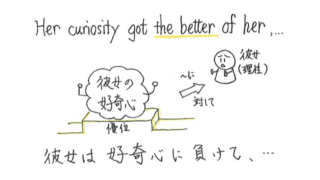 Her curiosity got the better of her,...
彼女の
好奇心
優位
〜に
対して
彼女
(理性)
彼女は 好奇心に 負けて、…